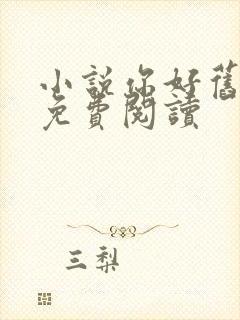 小說你好舊
免費閱讀
三梨